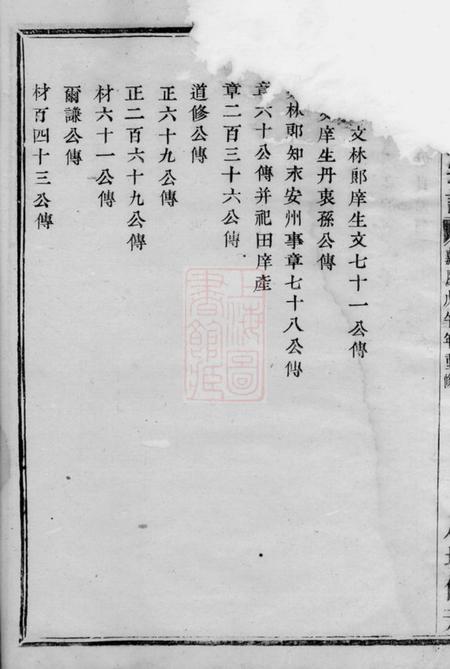 文林郎庠生文七十一公傳
庠生丹衷孫公傳
林郎知永安州事章七十八公傳
章六十公傳并祀田庠產
章二百三十六公傳
道修公傳
正六十九公傳
正二百六十九公傳
材六十一公傳
爾謙公傳
材百四十三公傳
上海圖書館藏